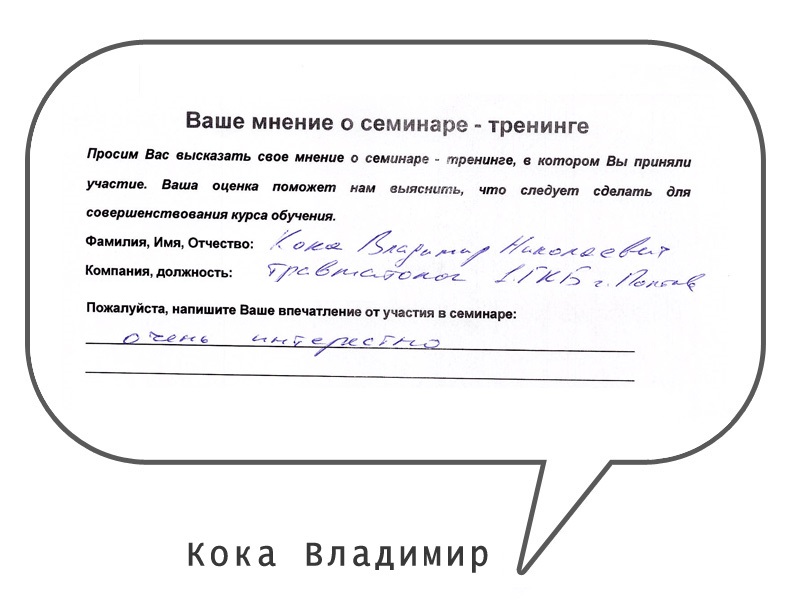 Ваше мнение о семинаре - тренинге
Просим Вас высказать свое мнение о семинаре - тренинге, в котором Вы приняли
участие. Ваша оценка поможет нам выяснить, что следует сделать для
совершенствования курса обучения.
Фамилия, Имя, Отчество: Кока Владимир Николаевич
Компания, должность: травматолог 1 ГКБ г. Полтава
Пожалуйста, напишите Ваше впечатление от участия в семинаре:
очень интерестно
Кока Владимир